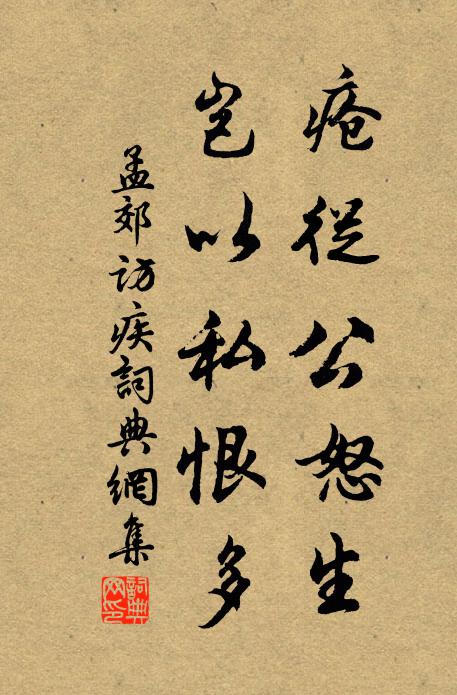 瘡從公怒生
豈以私恨多
孟郊訪疾詞典網集
詞典
网印